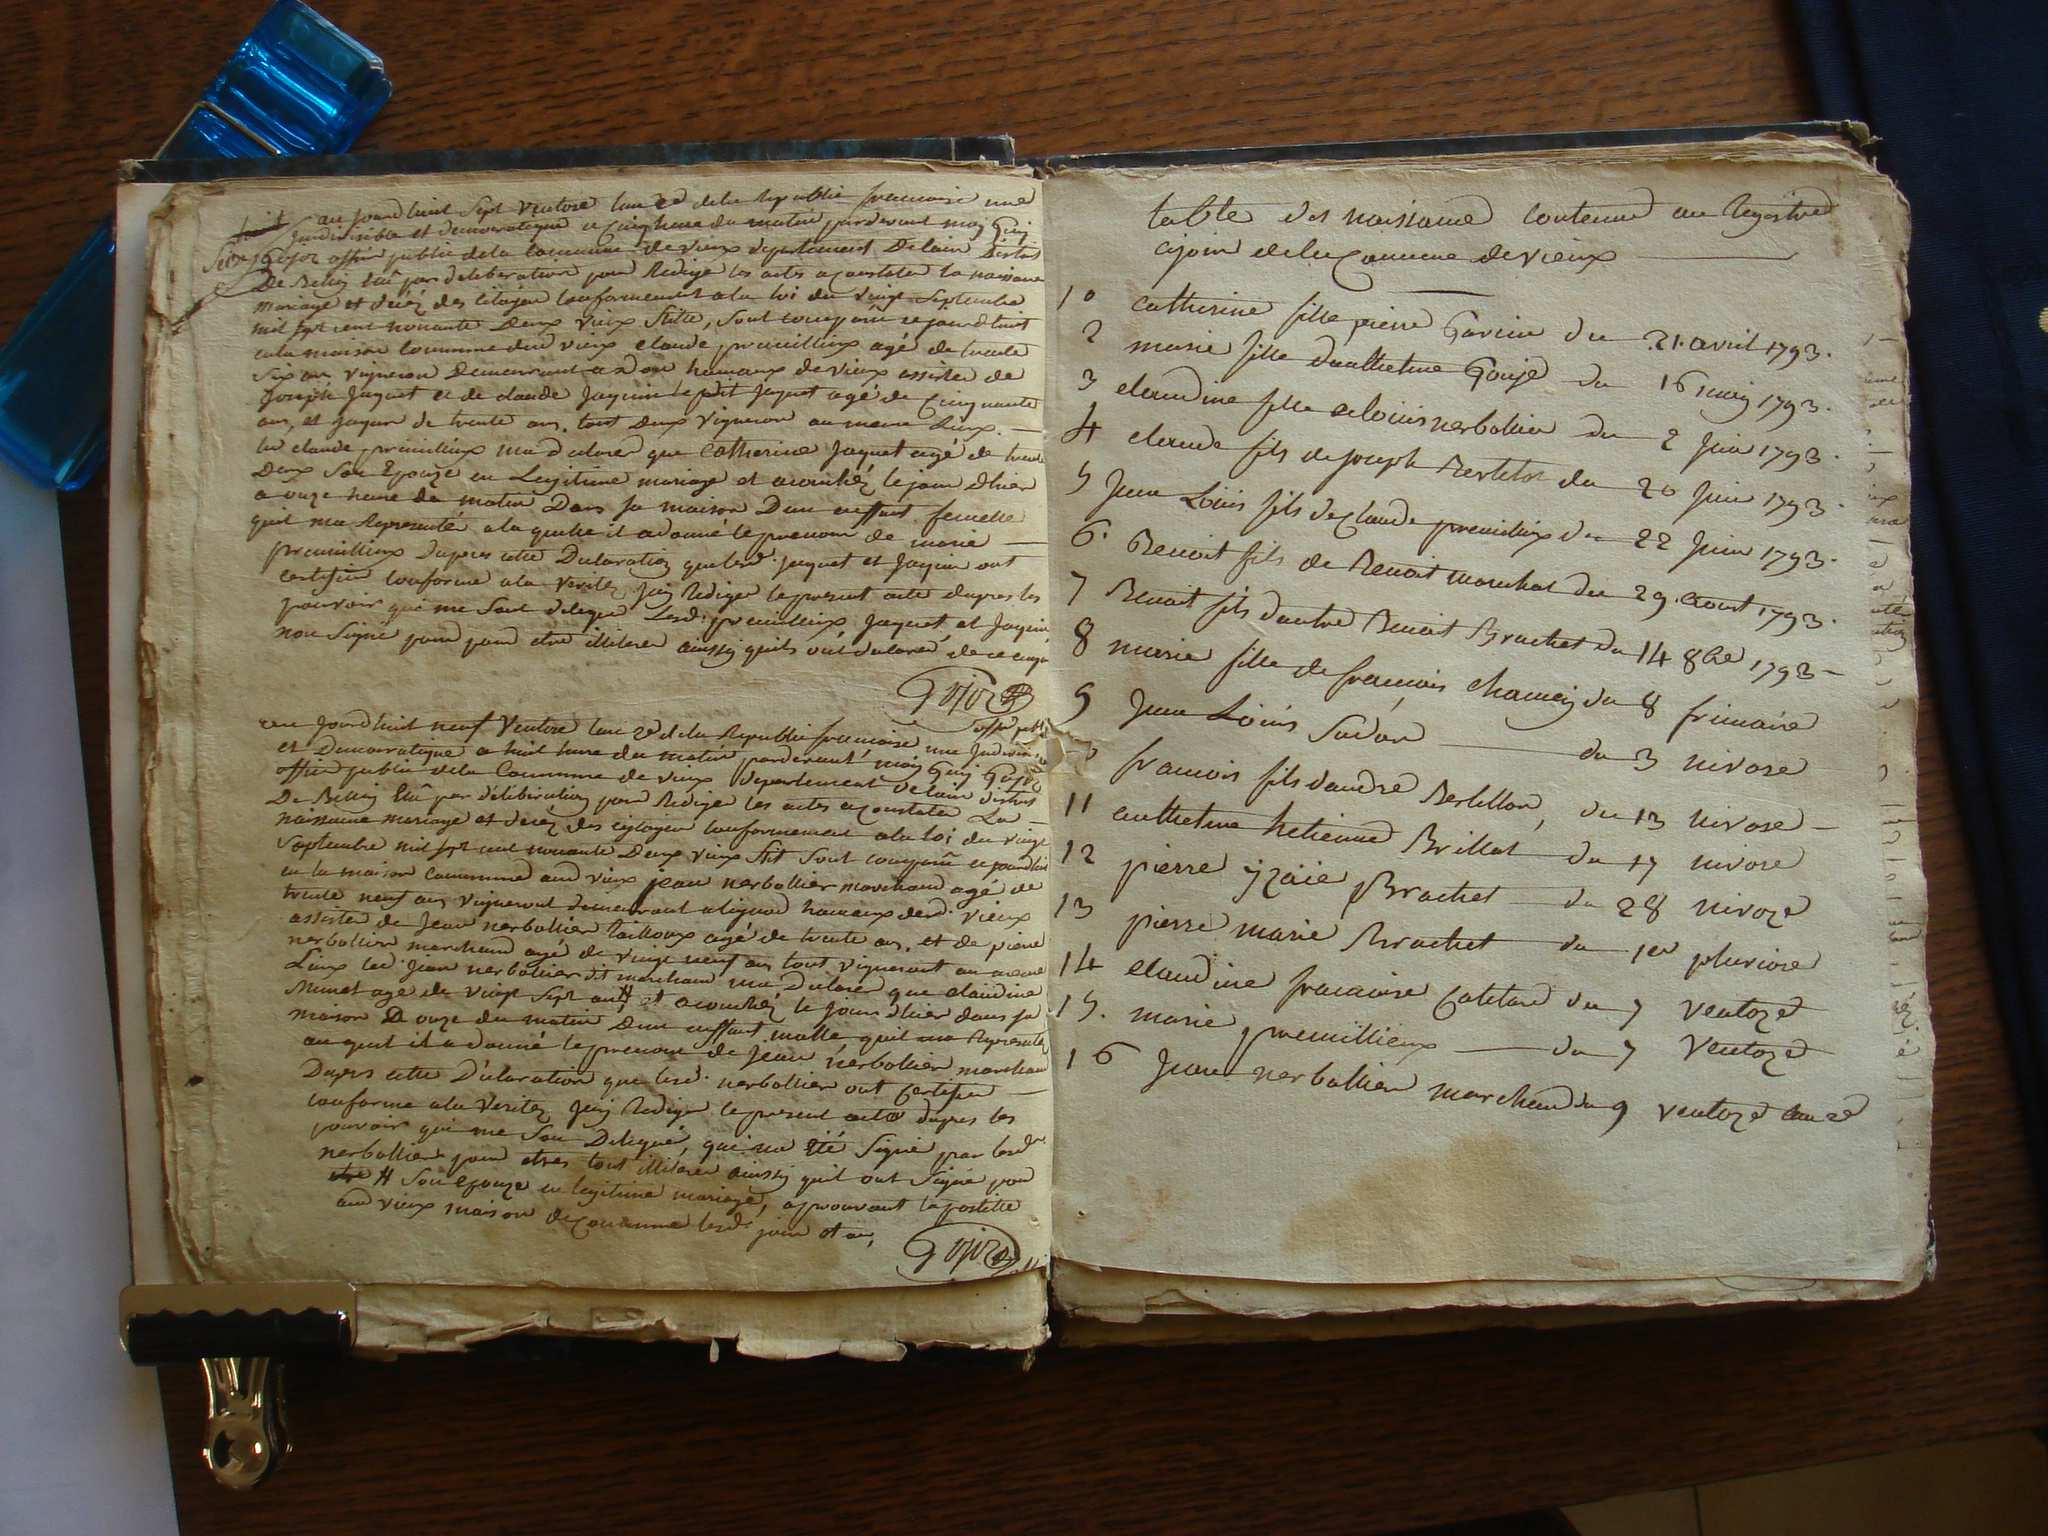 au jourdhuit Sept Ventose lan 2e dela Republic francoise une
Jndivisible et democratique a Cinq heure du matin pardevant moy Guy
Gojoz officier public dela Commune de vieux departement Delain District
De Belley Elû par deliberation pour Rediger les actes a Constater la naissance
mariage et decéz des Citoyen Conformement ala loi du vingt Septembre
mil sept cent nonante Deux vieux Stille, Sont comparûe ce jourdhuit
en la maison Commune dud vieux claude premillieux agé de trente
Six ans vigneron Demeurant a hameaux de vieux assister de
Joseph Jaquet et de claude Jaquin le ptit Jaquet agé de Cinquante
ans, et Jaquin de trente ans, tout Deux Vigneron au meme Lieux.
led claude premillieux ma declarer que Catherine Jaquet agé de trente
Deux Son Epouze en Legitime mariage et acouchéz le jour dhier
a onze heure du matin Dans sa maison Dun enffant femelle
quil ma Representé ala quelle il a donné le prenom de marie
premillieux Dapres cette Declaration que lesd. Jaquet et Jaquin ont
certifier Conforme ala Verité, Jay Rediger le present acte dapres les
pouvoir qui me Sont delegué Lesd. premillieux Jaquet et Jaquin
non Signé pour etre illiteré ainssy quils ont declaré de ce enquis
Gojoz
offr publ
au Jourdhuit neuf Ventose lan 2e dela Republic francoise une Jndivisi
et Democratique a huit heure du matin pardevant moy Guy Gojoz
officier public dela Commune de vieux Departement Delain district
De Belley Elû par déliberation pour Rediger les actes a Constater La
naissance mariage et decéz des citoyen Conformement ala loi du vingt
Septembre mil sept cent nonante Deux vieux Stil Sont comparûe ce jourdhuit
en la maison Commune aud vieux jean nerbollier marchand agé de
trente neuf ans Vigneront demeurant a lignod hameaux dud. vieux
assister de Jean nerbollier tailloux agé de trente ans, et de pierre
nerbollier marchand agé de vingt neuf ans tout vigneront au meme
Lieux led. Jean nerbollier dit marchand ma declarer que claudine
Munet age de vingt Sept ans H et acouchéz le jour dhier dans sa
maison D onze du matin Dun enffant malle quil ma Representé
au quel il a donné le prenom de Jean nerbollier marchand
Dapres cette Déclaration que lesd. nerbollier ont Certifier
conforme ala Veritez Jay Rediger le present acte dapres les
pouvoir qui me Son Delegué, qui na été Signé par lesd.
nerbollier pour etres tout illiteré ainssy quil ont Signé pour
H Son epouze en legitime mariage, aprouvant la postille
aud vieux maison de Commune lesd. jour et an,
Gojoz
table des naissance contenue au Registre
cyjoin de la Commune de vieux
1° catherine fille pierre Gavin du 21 avril 1793.
2 marie fille danthelme Gouje du 16 may 1793.
3 claudine fille de louis nerbollier du 2 Juin 1793.
4 claude fils de joseph Bertilot du 20 Juin 1793.
5 Jean Louis fils de Claude premillieux du 22 Juin 1793.
6. Benoit fils de Benoit marchat du 29 aoust 1793.
7 Benoit fils dautre Benoit Brachet du 14 8bre 1793
8 marie fille de francois chamoy du 8 frimaire
9 Jean Louis Sudan du 3 nivose
francois fils dandré Bertillon, du 13 nivose
11 anthelme hetienne Brillat du 17 nivose
12 pierre yzaie Brachet du 28 nivoze
13 pierre marie Brachet du 1er pluviose
14 claudine francoise Catelard du 7 ventoze
15. marie premillieux du 7 Ventoze
16 Jean nerbollier marchand du 9 ventoze lan 2e